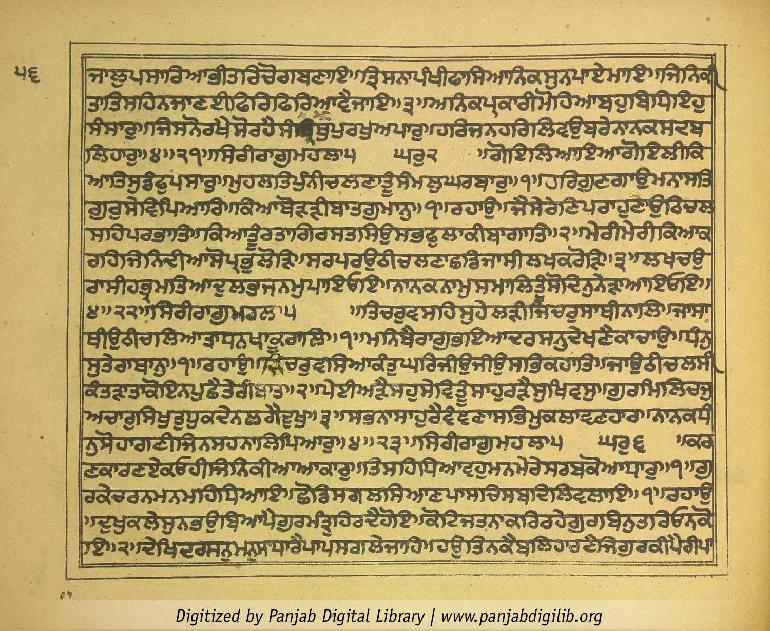 ੫੬
ਜਾਲੁਪਸਾਰਿਆਭੀਤਰਿਚੋਗਬਣਾਇ॥ਤ੍ਰਿਸਨਾਪੰਖੀਫਾਸਿਆਨਿਕਸੁਨਪਾਏਮਾਇ॥ਜਿਨਿਕੀ
ਤਾਤਿਸਹਿਨਜਾਣਈਫਿਰਿਫਿਰਿਆਵੈਜਾਇ॥੩॥ਅਨਿਕਪ੍ਰਕਾਰੀਮੋਹਿਆਬਹੁਬਿਧਿਇਹੁ
ਸੰਸਾਰੁ॥ਜਿਸਨੋਰਖੈਸੋਰਹੈਸੰਮ੍ਰਿਥੁਪੁਰਖੁਅਪਾਰੁ॥ਹਰਿਜਨਹਰਿਲਿਵਉਬਰੇਨਾਨਕਸਦਬ
ਲਿਹਾਰੁ॥੪॥੨੧॥ਸਿਰੀਰਾਗੁਮਹਲਾ੫ ਘਰੁ੨ ॥ਗੋਇਲਿਆਇਆਗੋਇਲੀਕਿ
ਆਤਿਸੁਡੰਫੁਪਸਾਰੁ॥ਮੁਹਲਤਿਪੁੰਨੀਚਲਣਾਤੂੰਸੰਮਲੁਘਰਬਾਰੁ॥੧॥ਹਰਿਗੁਣਗਾਉਮਨਾਸਤਿ
ਗੁਰੁਸੇਵਿਪਿਆਰਿ॥ਕਿਆਥੋੜੜੀਬਾਤਗੁਮਾਨੁ॥੧॥ਰਹਾਉ॥ਜੈਸੇਰੈਣਿਪਰਾਹੁਣੇਉਠਿਚਲ
ਸਹਿਪਰਭਾਤਿ॥ਕਿਆਤੂੰਰਤਾਗਿਰਸਤਸਿਉਸਭਫੁਲਾਕੀਬਾਗਾਤਿ॥੨॥ਮੇਰੀਮੇਰੀਕਿਆਕ
ਰਹਿਜਿਨਿਦੀਆਸੋਪ੍ਰਭੁਲੋੜਿ॥ਸਰਪਰਉਠੀਚਲਣਾਛਡਿਜਾਸੀਲਖਕਰੋੜਿ॥੩॥ਲਖਚਉ
ਰਾਸੀਹਭ੍ਰਮਤਿਆਦੁਲਭਜਨਮੁਪਾਇਓਇ॥ਨਾਨਕਨਾਮੁਸਮਾਲਿਤੂੰਸੋਦਿਨੁਨੇੜਾਆਇਓਇ॥
੪॥੨੨॥ਸਿਰੀਰਾਗੁਮਹਲ੫ ॥ਤਿਚਰੁਵਸਹਿਸੁਹੇਲੜੀਜਿਚਰੁਸਾਥੀਨਾਲਿ॥ਜਾਸਾ
ਥੀਉਠੀਚਲਿਆਤਾਧਨਖਾਕੂਰਾਲਿ॥੧॥ਮਨਿਬੈਰਾਗੁਭਇਆਦਰਸਨੁਦੇਖਣੈਕਾਚਾਉ॥ਧੰਨੁ
ਸੁਤੇਰਾਥਾਨੁ॥੧॥ਰਹਾਉ॥ਚਿਰੁਵਸਿਆਕੰਤੁਘਰਿਜੀਉਜੀਉਸਭਿਕਹਾਤਿ॥ਜਾਉਠੀਚਲਸੀ
ਕੰਤੜਾਤਾਕੋਇਨਪੁਛੈਤੇਰੀਬਾਤ॥੨॥ਪੇਈਅੜੈਸਹੁਸੇਵਿਤੂੰਸਾਹੁਰੜੈਸੁਖਿਵਸੁ॥ਗੁਰਮਿਲਿਚਜੁ
ਅਚਾਰੁਸਿਖੁਤੁਧੁਕਦੇਨਲਗੈਦੁਖੁ॥੩॥ਸਭਨਾਸਾਹੁਰੈਵੰਞਣਾਸਭਿਮੁਕਲਾਵਣਹਾਰ॥ਨਾਨਕਧੰ
ਨੁਸੋਹਾਗਣੀਜਿਨਸਹਨਾਲਿਪਿਆਰੁ॥੪॥੨੩॥ਸਿਰੀਰਾਗੁਮਹਲਾ੫ ਘਰੁ੬ ॥ਕਰ
ਣਕਾਰਣਏਕਓਹੀਜਿਨਿਕੀਆਆਕਾਰੁ॥ਤਿਸਹਿਧਿਆਵਹੁਮਨਮੇਰੇਸਰਬਕੋਆਧਾਰੁ॥੧॥ਗੁ
ਰਕੇਚਰਨਮਨਮਾਹਿਧਿਆਇ॥ਛੋਡਿਸਗਲਸਿਆਣਪਾਸਾਚਿਸਬਦਿਲਿਵਲਾਇ॥੧॥ਰਹਾਉ
॥ਦੁਖੁਕਲੇਸੁਨਭਉਬਿਆਪੈਗੁਰਮੰਤ੍ਰੁਹਿਰਦੈਹੋਇ॥ਕੋਟਿਜਤਨਾਕਰਿਰਹੇਗੁਰਬਿਨੁਤਰਿਓਨਕੋ
ਇ॥੨॥ਦੇਖਿਦਰਸਨੁਮਨੁਸਾਧਾਰੈਪਾਪਸਗਲੇਜਾਹਿ॥ਹਉਤਿਨਕੈਬਲਿਹਾਰਣੈਜਿਗੁਰਕੀਪੈਰੀਪਾ
Digitized by Panjab Digital Library | www.panjabdigilib.org